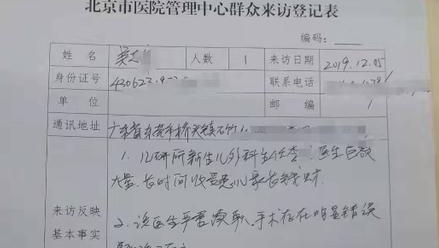 北京市医院管理中心群众来访登记表
编码:
姓 名 吴 人数 1 来访日期 2019.12.05
身份证号 430623 联系电话
单 位 邮 编 /
通讯地址 广东省东莞市桥头镇石竹
来访反映 1. 儿研所新生儿外科主任李 医生巨款
大量、长时间收受患儿家长钱财.
2. 该医生严重渎职、手术存在明显错误
基本事实